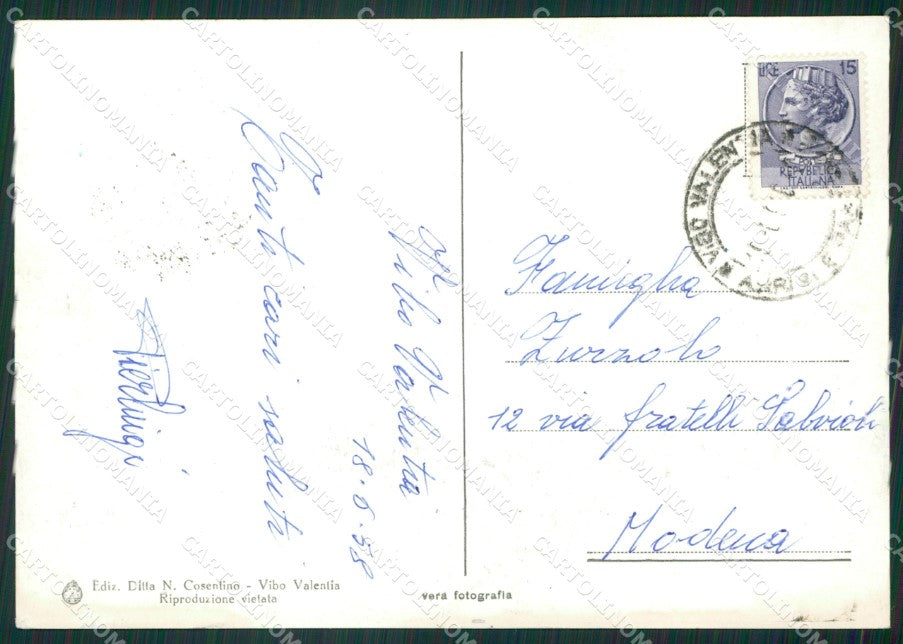 Vibo Valentia
18.8.58
Tanti cari saluti
Pierluigi
Ediz. Ditta N. Cosentino - Vibo Valentia
Riproduzione vietata
vera fotografia
LIRE 15
REPVBBLICA
ITALIANA
VIBO VALENTIA
Famiglia
Zurzolo
12 via fratelli Salvioli
Modena
CARTOLINOMANIA